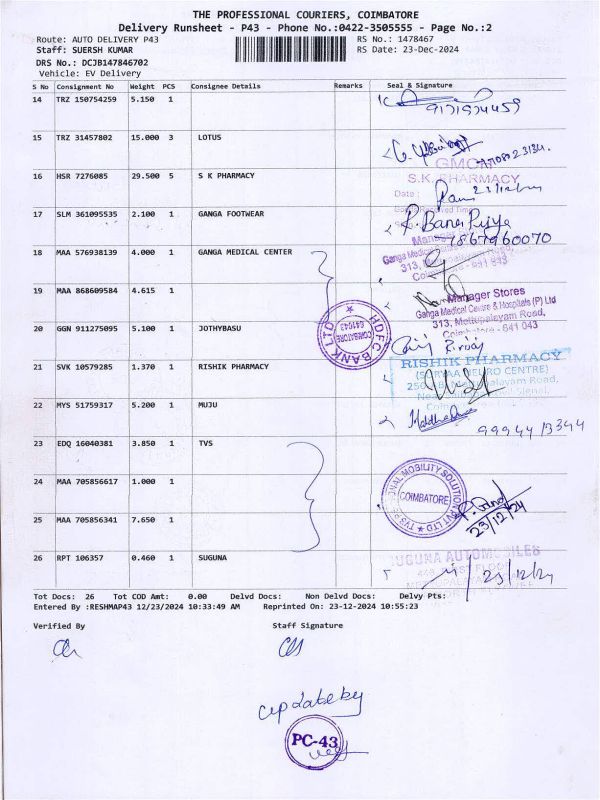 THE PROFESSIONAL COURIERS, COIMBATORE
Delivery Runsheet - P43 - Phone No.:0422-3505555 - Page No.:2
Route: AUTO DELIVERY P43
RS No.: 1478467
Staff: SUERSH KUMAR
RS Date: 23-Dec-2024
DRS No.: DCJB147846702
Vehicle: EV Delivery
S No Consignment No Weight PCS Consignee Details Remarks Seal & Signature
14 TRZ 150754259 5.150 1
15 TRZ 31457802 15.000 3 LOTUS
16 HSR 7276085 29.500 5 S K PHARMACY
S.K. PHARMACY
Date :
17 SLM 361095535 2.100 1 GANGA FOOTWEAR
18 MAA 576938139 4.000 1 GANGA MEDICAL CENTER
19 MAA 868609584 4.615 1
Manager Stores
Ganga Medical Centre & Hospitals (P) Ltd
313, Mettupalayam Road,
Coimbatore - 641 043
20 GGN 911275095 5.100 1 JOTHYBASU
HDFC BANK LTD
COIMBATORE
641043
21 SVK 10579285 1.370 1 RISHIK PHARMACY
RISHIK PHARMACY
22 MYS 51759317 5.200 1 MUJU
23 EDQ 16040381 3.850 1 TVS
24 MAA 705856617 1.000 1
COIMBATORE
23/12/24
25 MAA 705856341 7.650 1
26 RPT 106357 0.460 1 SUGUNA
SUGUNA AUTOMOBILES
23/12/24
Tot Docs: 26 Tot COD Amt: 0.00 Delvd Docs: Non Delvd Docs: Delvy Pts:
Entered By :RESHMAP43 12/23/2024 10:33:49 AM Reprinted On: 23-12-2024 10:55:23
Verified By
Staff Signature
update by
PC-43